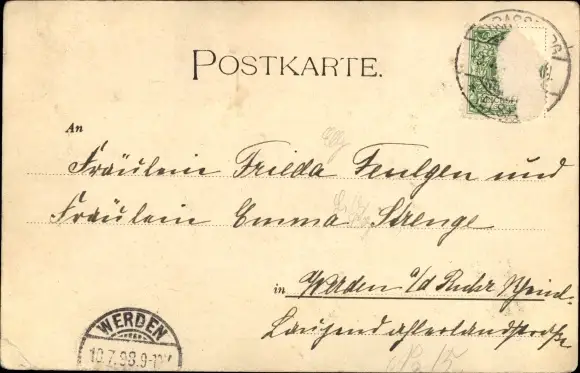 POSTKARTE.
An
Fräulein Frieda Feulgen und
Fräulein Emma Strenge
in Werden a/d Ruhr Rheinl.
WERDEN
10.7.98.9-